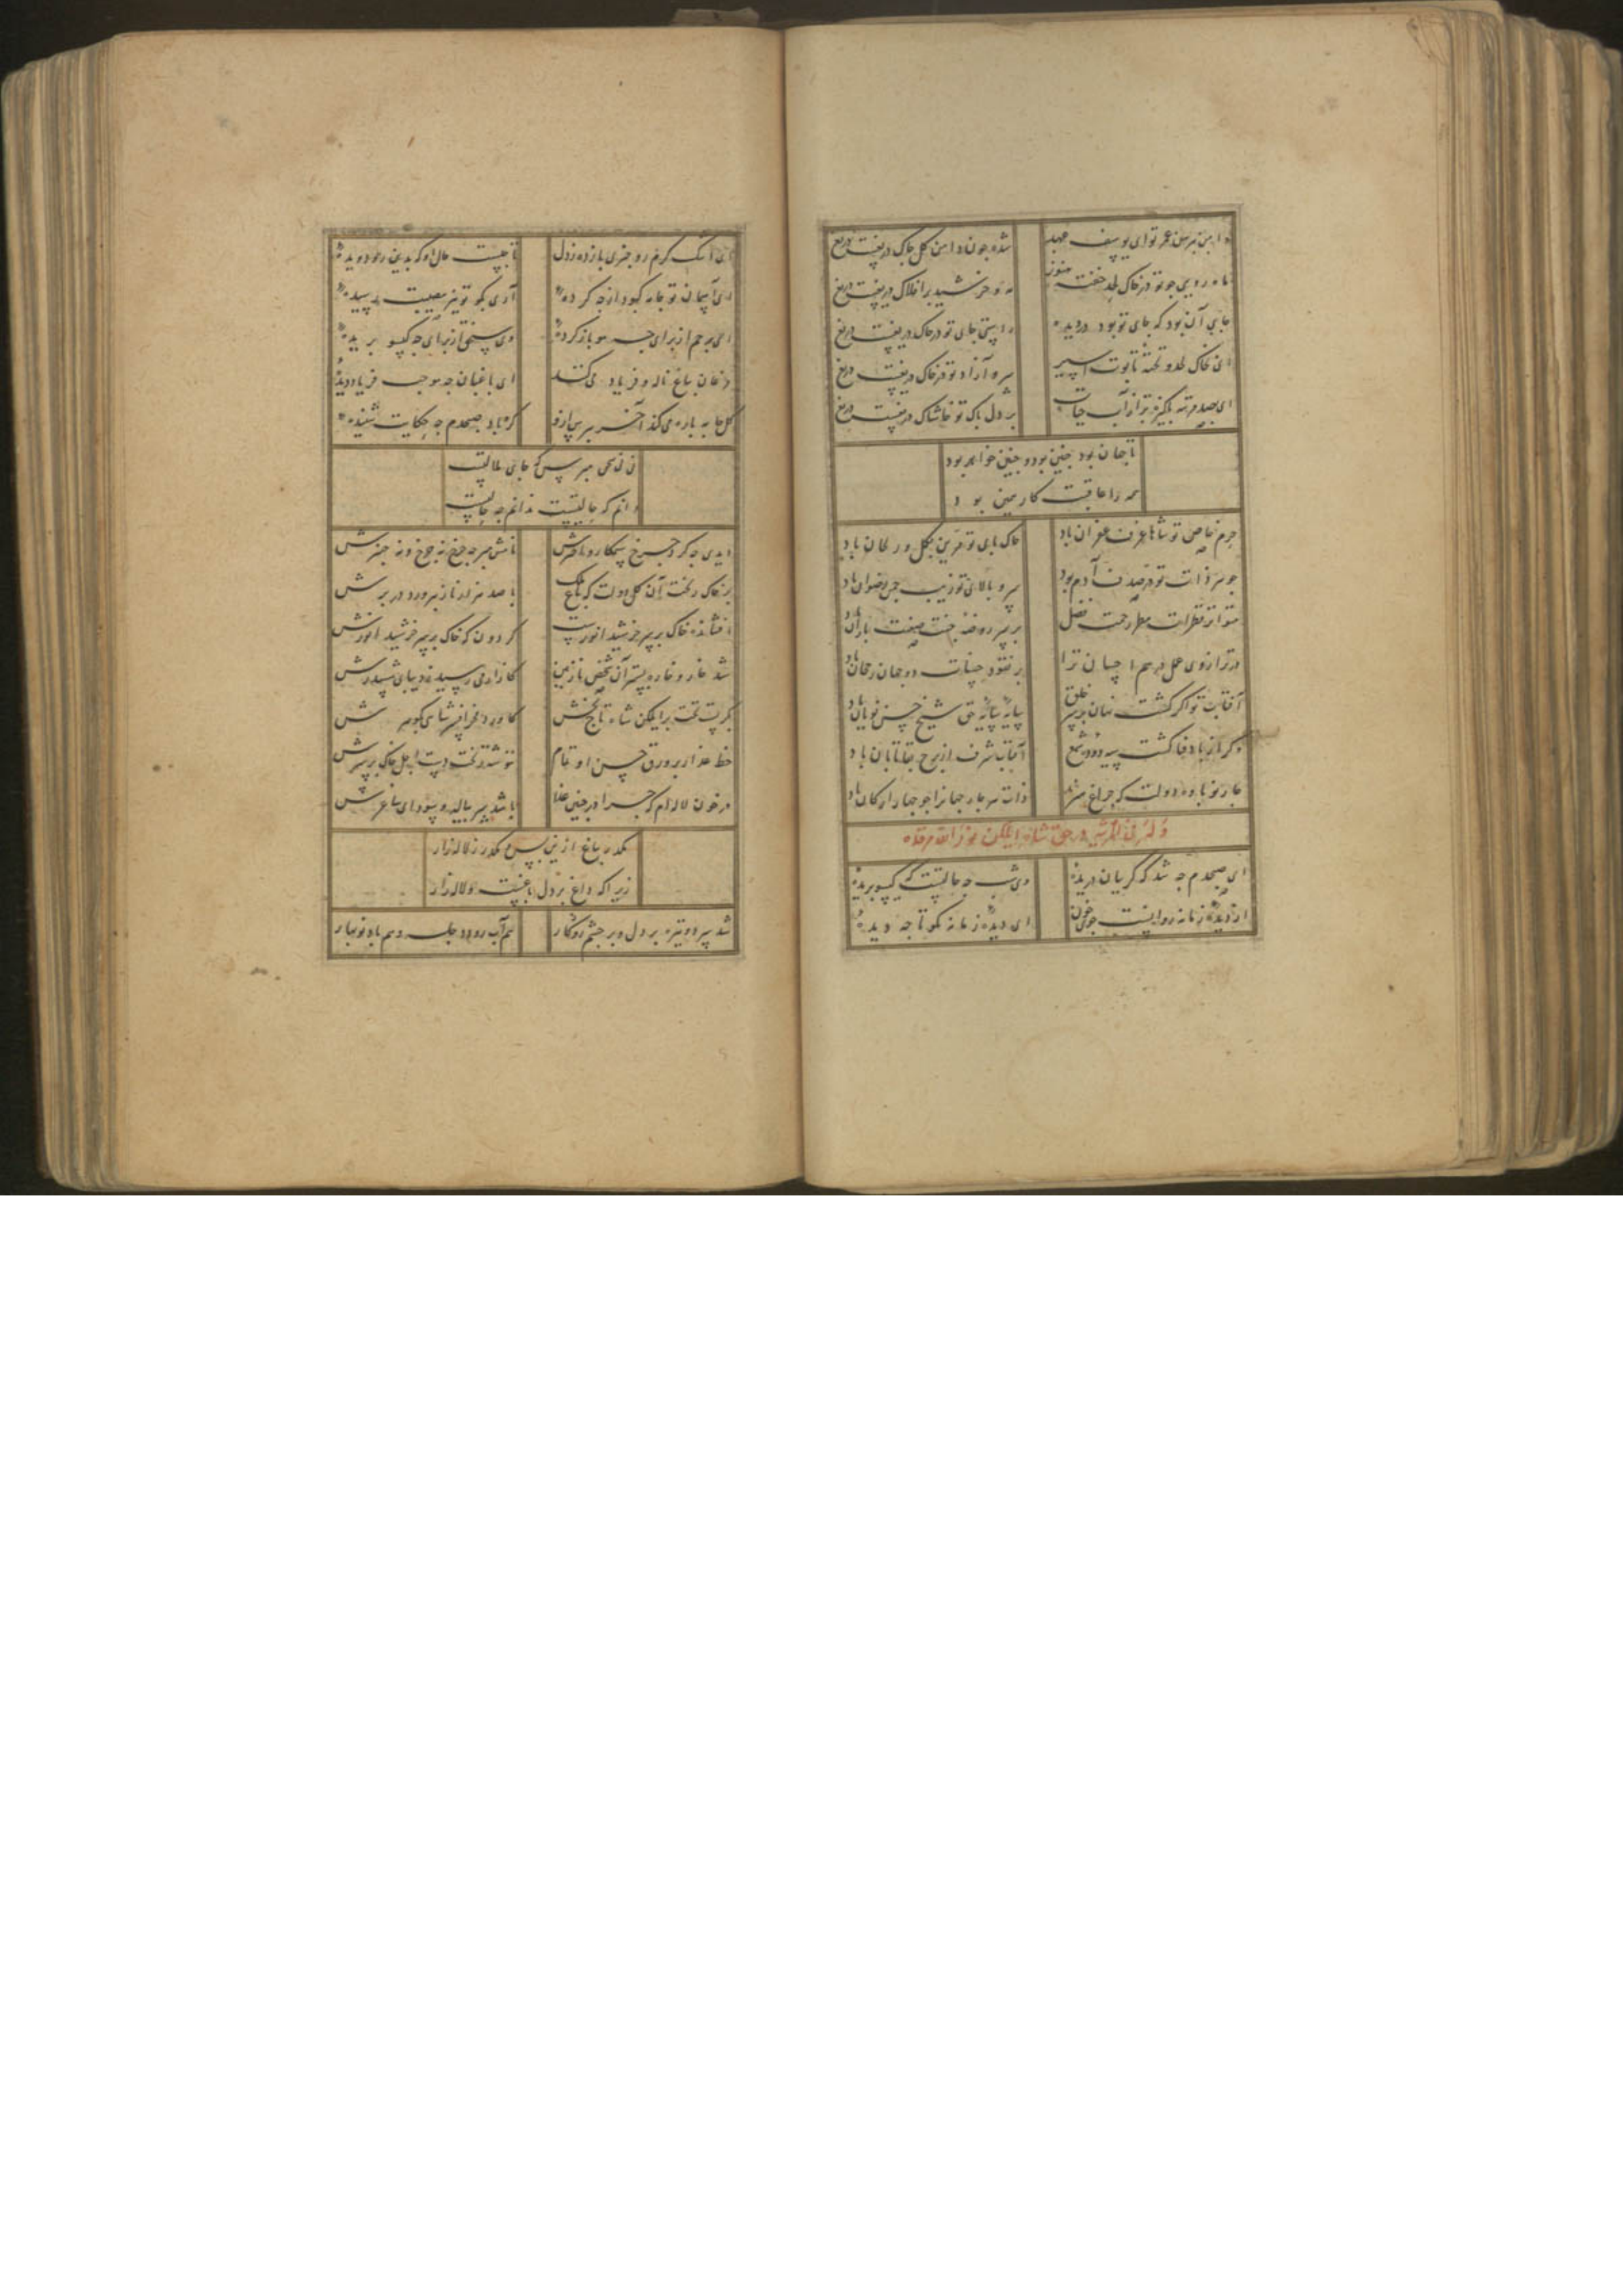 دامن پیرهن عمر تو ای یوسف عهد شده چون دامن گل چاک دریغست دریغ
ماه رویی چو تو در خاک لحد خفته هنوز مه و خورشید بر افلاک دریغست دریغ
جای آن بود که جای تو بود در دیده راستی جای تو در خاک دریغست دریغ
ای بخاک لحد و تخته تابوت اسیر سرو آزاد تو در خاک دریغست دریغ
ای بصد مرتبه پاکیزه‌تر از آب حیات بر دل پاک تو خاشاک دریغست دریغ
تا جهان بود چنین بود و چنین خواهد بود
همه را عاقبت کار همین بود
جرم خاص تو شاها غرف غفران باد خاک پای تو قرین گل و ریحان باد
جوهر ذات تو در صدف آدم بود سرو بالای تو زیب چمن رضوان باد
متواتر قطرات مطر رحمت فضل بر سر روضه جنت صفتت باران باد
در ترازوی عمل
آفتاب تو اگر گشت نهان بر سر خلق سایهٔ حق شیخ حسن نویان باد
وگر از باد فنا گشت سیه دود شمع آفتاب شرف از برج بقا تابان باد
چار نوباوه دولت که چراغ ذات هر چار جهانرا چو چهار ارکان باد
وله فی المرثیه در حق شاه ایلکن نور الله مرقده
ای صبحدم چه شد که گریبان دریدهٔ وی شب چه حالتست که گیسو بریدهٔ
از دیدهٔ زمانه روانست جوی خون ای دیدهٔ زمانه نکو تا چه دیدهٔ
ای اشک گرم رو خبری باز ده ز دل تا چیست حال او که بدین رو دویدهٔ
ای آسمان تو جامه کبود از چه کردهٔ آری مگر تو نیز مصیبت رسیدهٔ
ای از برای چه مو باز کردهٔ وی از برای چه گیسو بریدهٔ
مرغان باغ ناله و فریاد می‌کنند ای باغبان چه موجب فریاد دیدهٔ
گل جامه پاره می‌کند آخر بپرس ازو کز باد صبحدم چه حکایت شنیدهٔ
نی نی مپرس که جای ملالتست
دانم که حالتیست ندانم چه حالتست
دیدی چه کرد چرخ ستمکار و اخترش نامش مبر چه چرخ نه چرخ و نه چنبرش
بر خاک ریخت آن گل دولت که باغ ملک با صد هزار ناز بپرورد در برش
افشانده خاک بر سر خورشید انورست گردون که خاک بر سر خورشید انورش
شد خار و خاره بستر آن شخص نازنین کازار می رسید ز دیبای ششترش
بگریست تخت بر ایلکن شاه تاج بخش
خط عذار بر ورق حسن او تمام ننوشته ریخت دست اجل خاک بر سرش
در خون لاله‌ام که چرا در چنین عزا باشد بسر پیاله و سودای ساغرش
مگذر بباغ ازین پس و مگذر ز لاله‌زار
زیرا که داغ بر دل باغست و لاله‌زار
شد سرد و تیره بر دل و بر چشم روزگار هم آب رود دجله و هم باد نوبهار